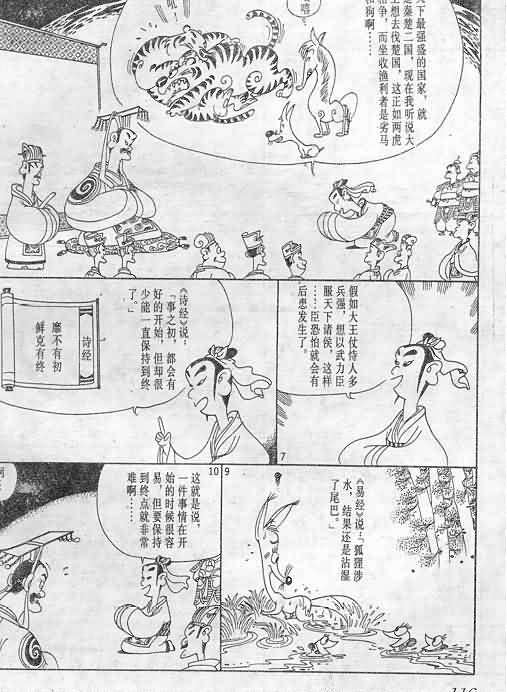 下最强盛的国家，就
是秦楚二国，现在我听说大
王想去伐楚国，这正如两虎
相争，而坐收渔利者是劣马
和狗啊……
假如大王仗恃人多
兵强，想以武力臣
服天下诸侯，这样
……臣恐怕就会有
后患发生了。
7
《诗经》说：
「事之初，都会有
好的开始，但却很
少能一直保持到终
了。」
诗经
靡不有初
鲜克有终
9
《易经》说：「狐狸涉
水，结果还是沾湿
了尾巴。」
10
这就是说，
一件事情在开
始的时候很容
易，但要保持
到终点就非常
难啊……
116